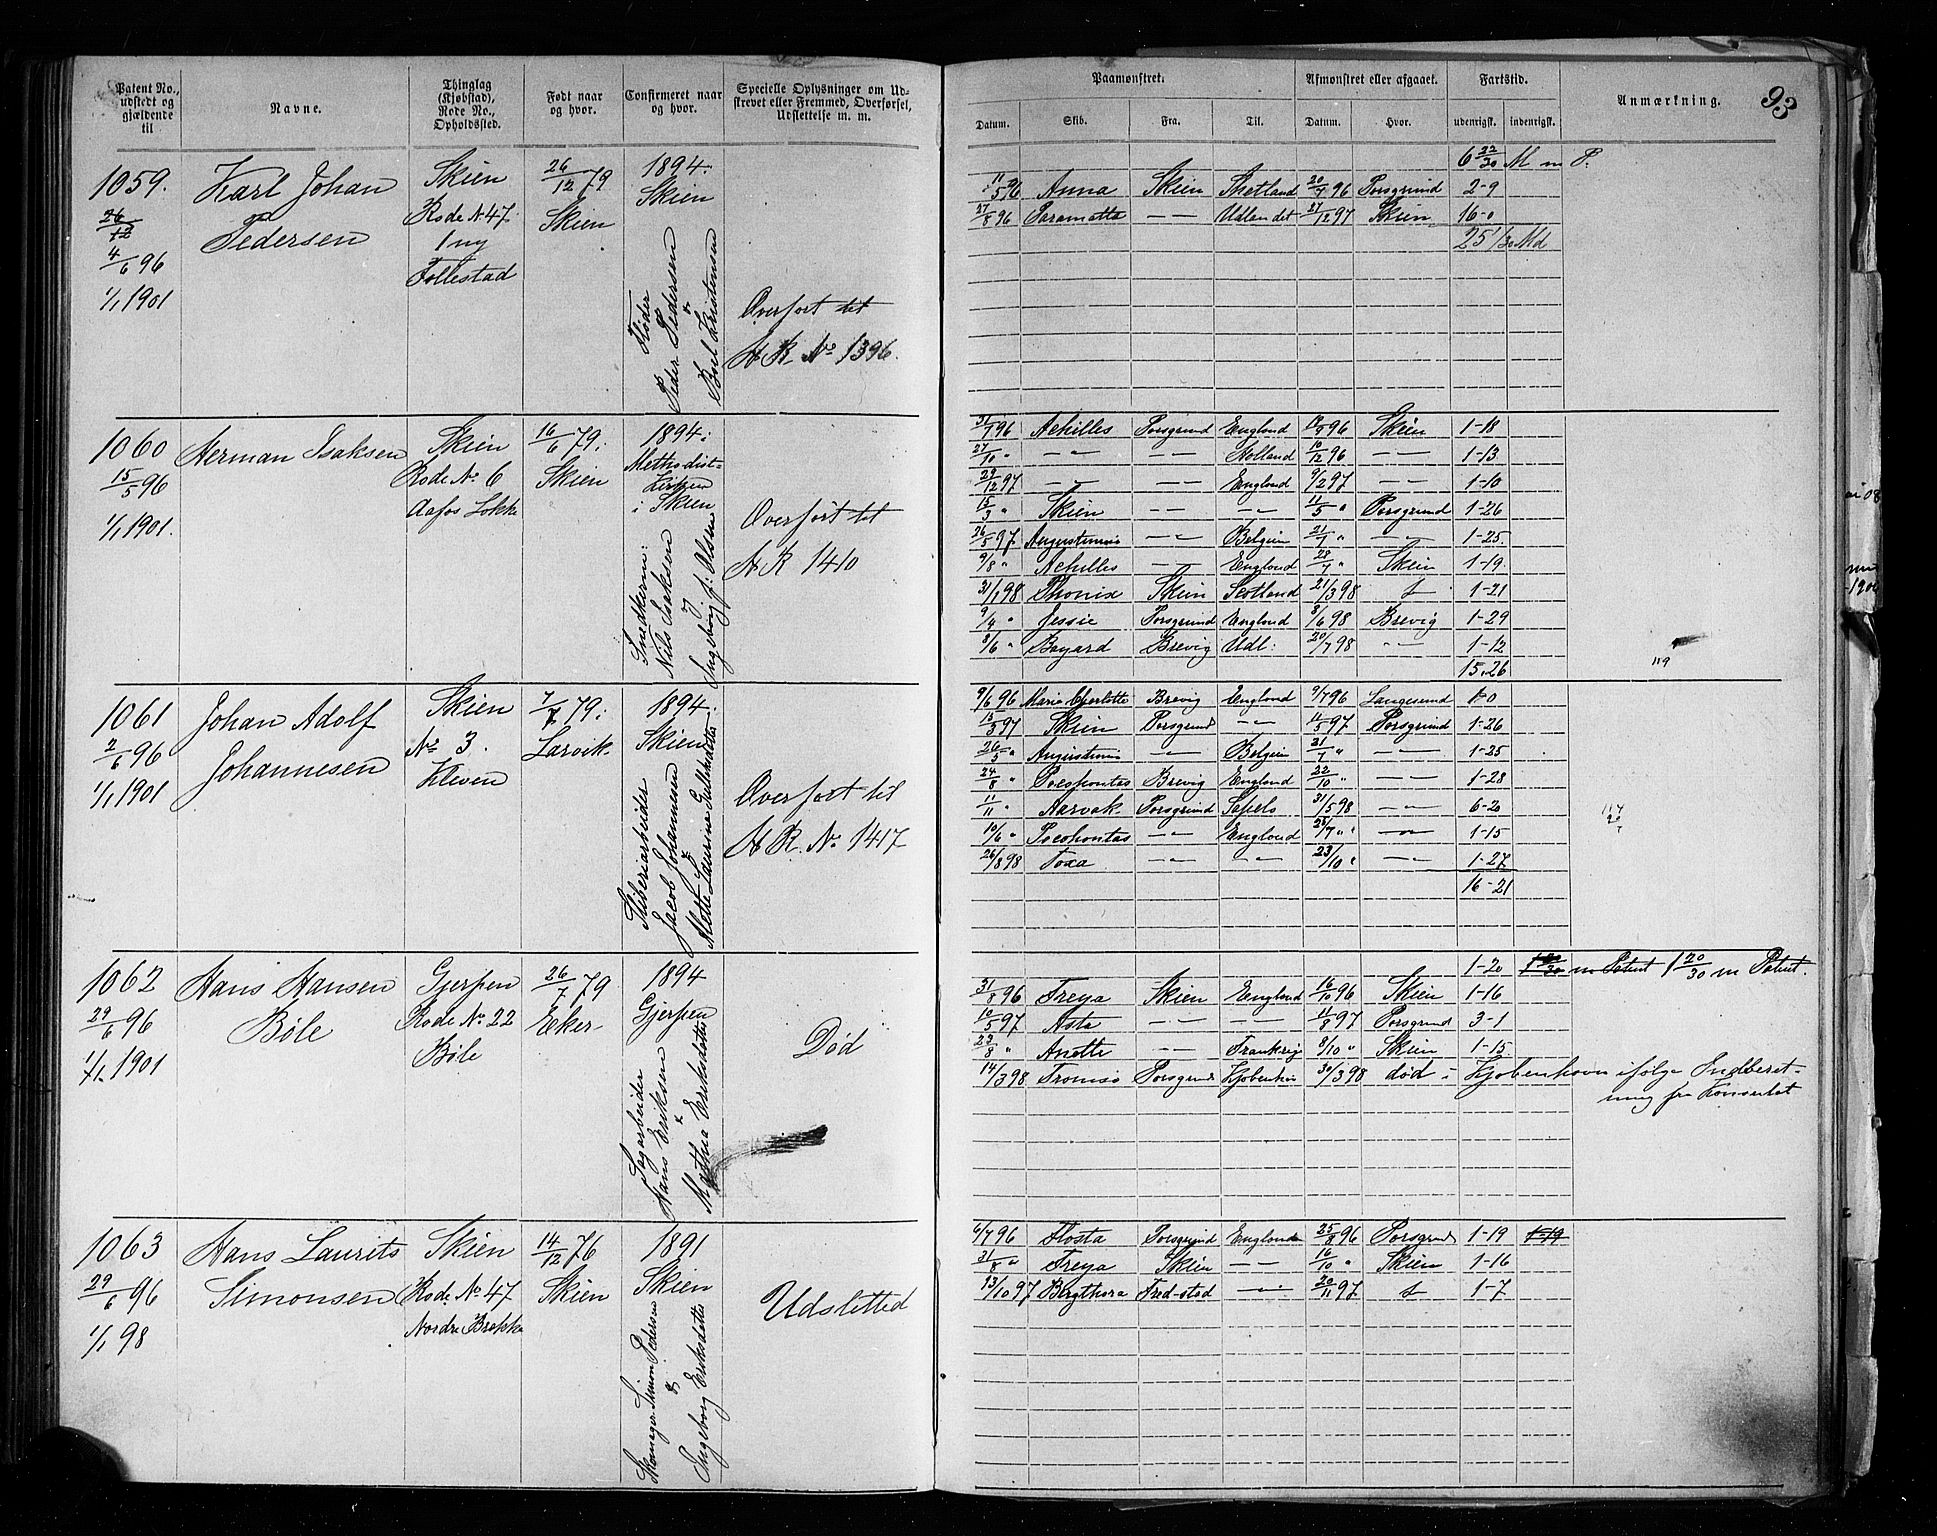 93
Patent No., udstedt og gjældende til
Navne.
Thinglag (Kjøbstad), Rode No., Opholdssted.
Født naar og hvor.
Confirmeret naar og hvor.
Specielle Oplysninger om Udstrevet eller Fremmed, Overførsel, Udslettelse m. m.
Paamønstret.
Afmønstret eller afgaaet.
Fartstid.
Anmærkning.
Datum. Skib. Fra: Til. Datum. Hvor. udenrigsk. indenrigsk.
1059.
26/12
4/6 96
1/1 1901
Karl Johan
Pedersen
Skien
Rode No 47
1 ny
Follestad
26/12 79
Skien
1894.
Skien
Fløder
Peder Pedersen
&
Boel Kristensen
Overført til
H R No 1396.
6 22/30 M m P.
11/5 96 Anna Skien Shetland 20/7 96 Porsgrund 2-9
27/8 96 Paramatta — Udlandet 27/12 97 Skien 16-0
25 1/30 Md
1060
15/5 96
1/1 1901.
Herman Isaksen
Skien
Rode No 6
Aafos Løkke
16/6 79.
Skien
1894:
Methodist-
kirken
i Skien
Snedkerm:
Nils Isaksen
&
Ingeborg f: Olsen
Overført til
H R 1410
31/7 96 Achilles Porsgrund England 96 Skien 1-18
27/10 " — — Holland 10/12 96 — 1-13
29/12 97 — — England 9/2 97 — 1-10
15/3 " Skien — — 11/5 " Porsgrund 1-26
26/5 97 Augustinus — Belgien 21/7 " — 1-25
9/8 " Achilles — England 28/7 " Skien 1-19
31/1 98 Phønix Skien Scotland 21/3 98 1-21
9/4 " Jessie Porsgrund England 8/6 98 Brevig 1-29
8/6 " Bayard Brevig Udl: 20/7 98 — 1-12
15.26
119
1061
2/6 96
1/1 1901
Johan Adolf
Johannesen
Skien
No 3.
Kleven
7/7 79.
Larvik.
1894.
Skien
Sliberiarbeider
Jacob Johannesen
&
Mette Laurine Gulliksdatter
Overført til
H R. No 1417
9/6 96 Marie Charlotte Brevig England 9/7 96 Langesund 1-0
15/3 97 Skien Porsgrund — 11/5 97 Porsgrund 1-26
26/5 " Augustinus — Belgien 21/7 " — 1-25
24/8 " Pocohontas Brevig England 22/10 " — 1-28
11/11 " Aarvak Porsgrund Sapelo 31/5 98 — 6-20
10/6 " Pocohontas — England 25/7 " — 1-15
26/8 98 Toxa — — 23/10 " — 1-27
16-21
1062
29/6 96
1/1 1901
Hans Hansen
Bøle
Gjerpen
Rode No 22
Bøle
26/7 79
Eker-
1894
Gjerpen
Sagarbeider
Hans Eriksen
&
Mathea Eriksdatter
Død
1-20 1 20/30 m Patent 1 20/30 m Patent.
31/8 96 Freya Skien England 16/10 96 Skien 1-16
10/5 97 Asta — — 11/8 97 Porsgrund 3-1
23/8 " Anette — Frankrig 8/10 " Skien 1-15
14/3 98 Tromsø Porsgrund Kjøbenhavn 30/3 98 død i Kjøbenhavn ifølge Indberet-
ning fra Konsulat
1063
29/6 96
1/1 98
Hans Laurits
Simonsen
Skien
Rode No 47
Nordre Brekke
14/12 76
Skien
1891
Skien
Skomager Simon Pedersen
&
Ingeborg Eriksdatter
Udsletted
6/7 96 Flosta Porsgrund England 25/8 96 Porsgrund 1-19 1-19
31/8 " Freya Skien — 16/10 " Skien 1-16
13/10 97 Bergthora Fred-stad — 20/11 97 1-7